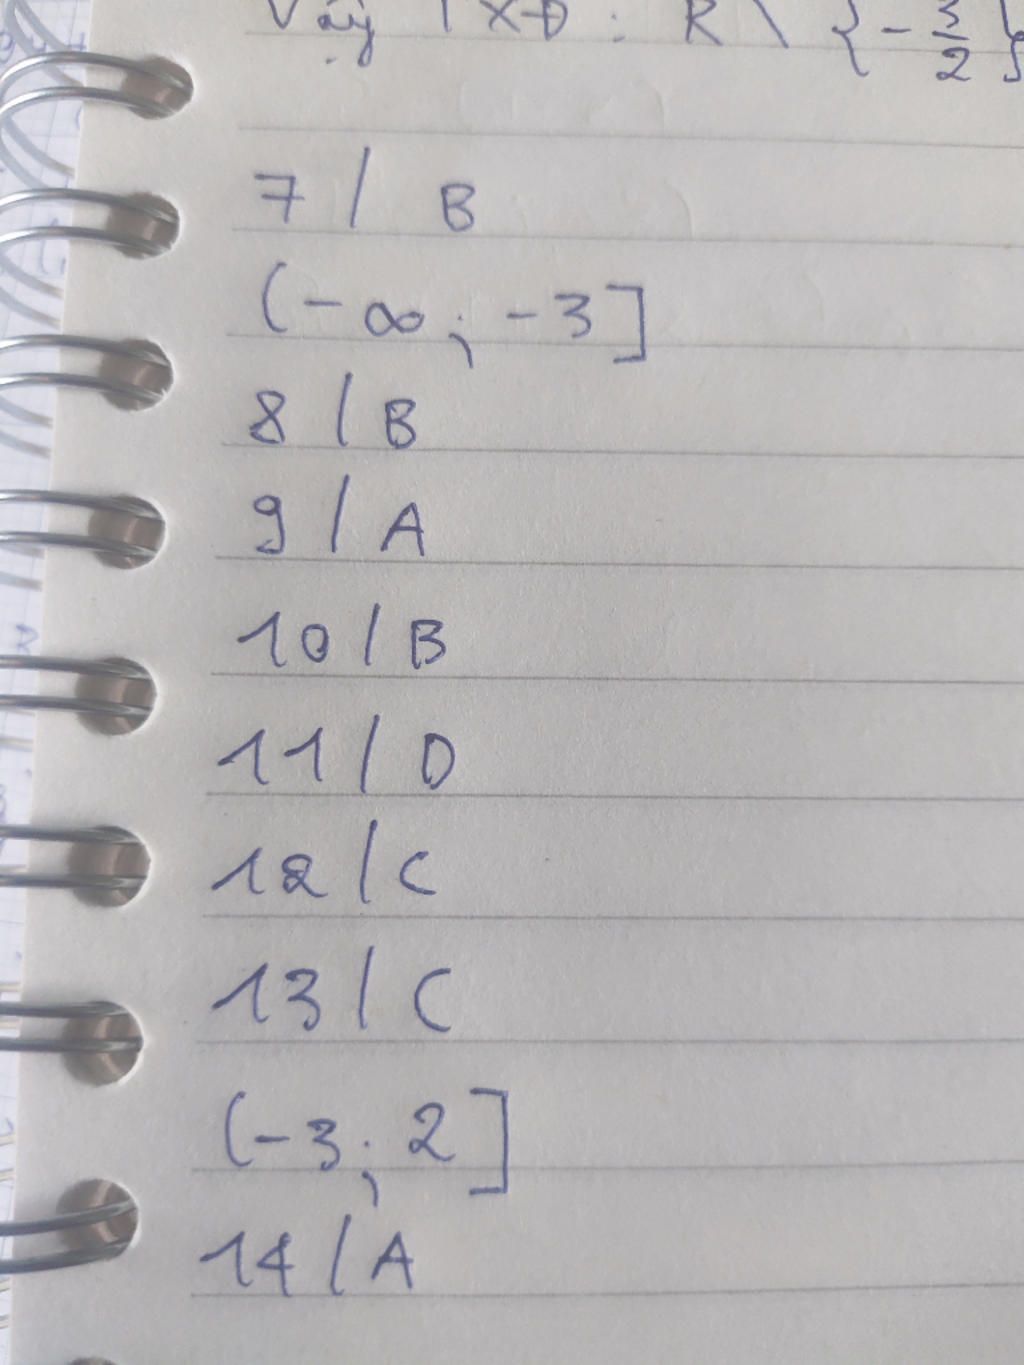 Vậy TXĐ : R \ {-3/2}
7 / B
(-∞; -3]
8 / B
9 / A
10 / B
11 / D
12 / C
13 / C
(-3; 2]
14 / A